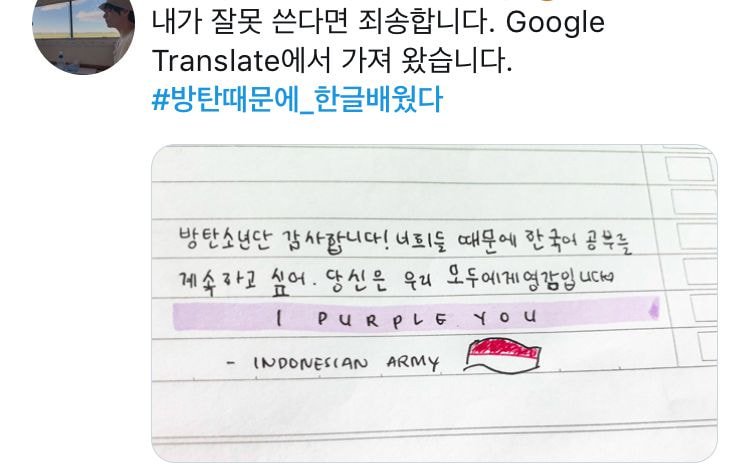 내가 잘못 쓴다면 죄송합니다. Google
Translate에서 가져 왔습니다.
#방탄때문에_한글배웠다
방탄소년단 감사합니다! 너희들 때문에 한국어 공부를
계속하고 싶어. 당신은 우리 모두에게영감입니다
I PURPLE YOU
- INDONESIAN ARMY